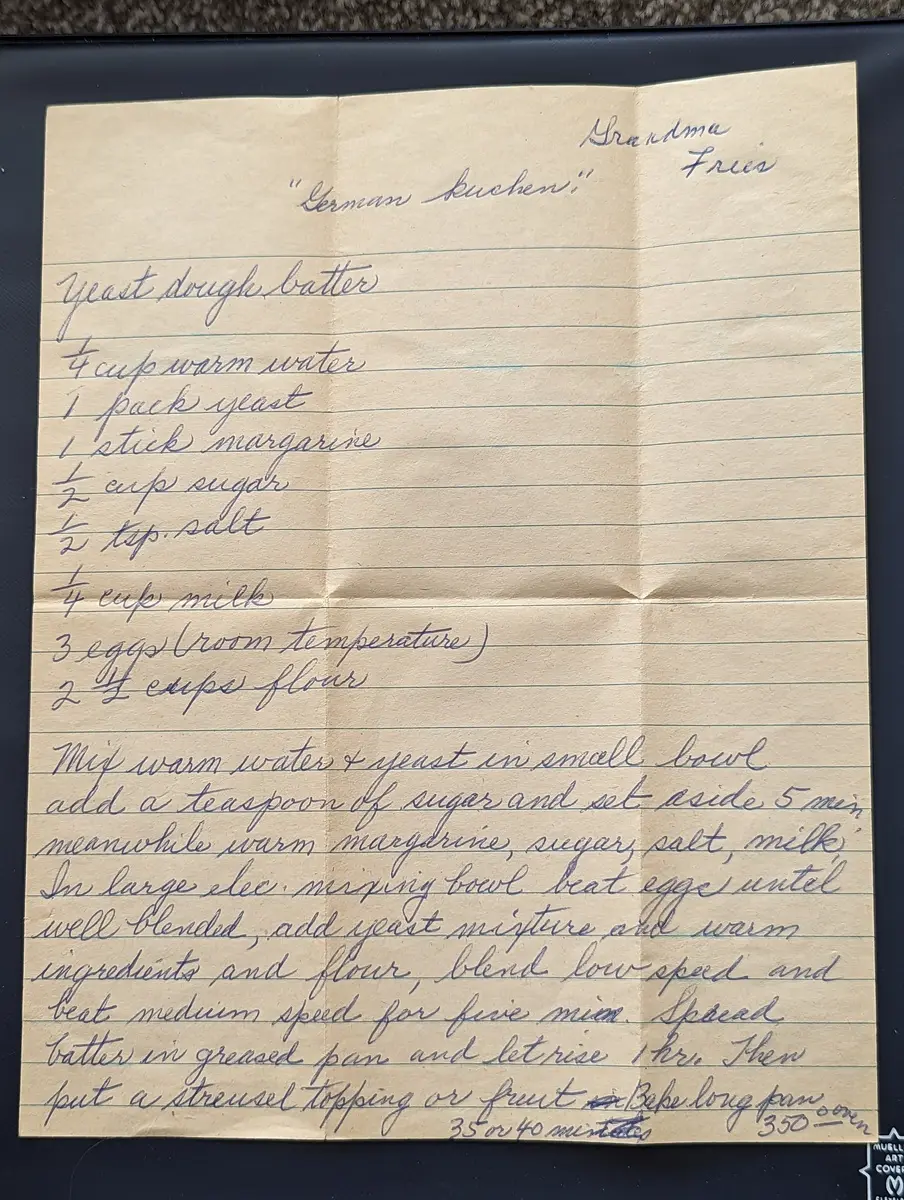 Grandma
Fries
"German kuchen."
Yeast dough batter
1/4 cup warm water
1 pack yeast
1 stick margarine
1/2 cup sugar
1/2 tsp. salt
1/4 cup milk
3 eggs (room temperature)
2 1/2 cups flour
Mix warm water & yeast in small bowl
add a teaspoon of sugar and set aside 5 min
meanwhile warm margarine, sugar, salt, milk,
In large elec. mixing bowl beat eggs until
well blended, add yeast mixture and warm
ingredients and flour, blend low speed and
beat medium speed for five min. Spread
batter in greased pan and let rise 1 hr. Then
put a streusel topping or fruit Bake long pan
35 or 40 minutes 350° oven
MUELL
ART
COVER
M